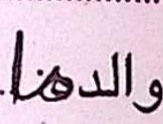 والدهنا